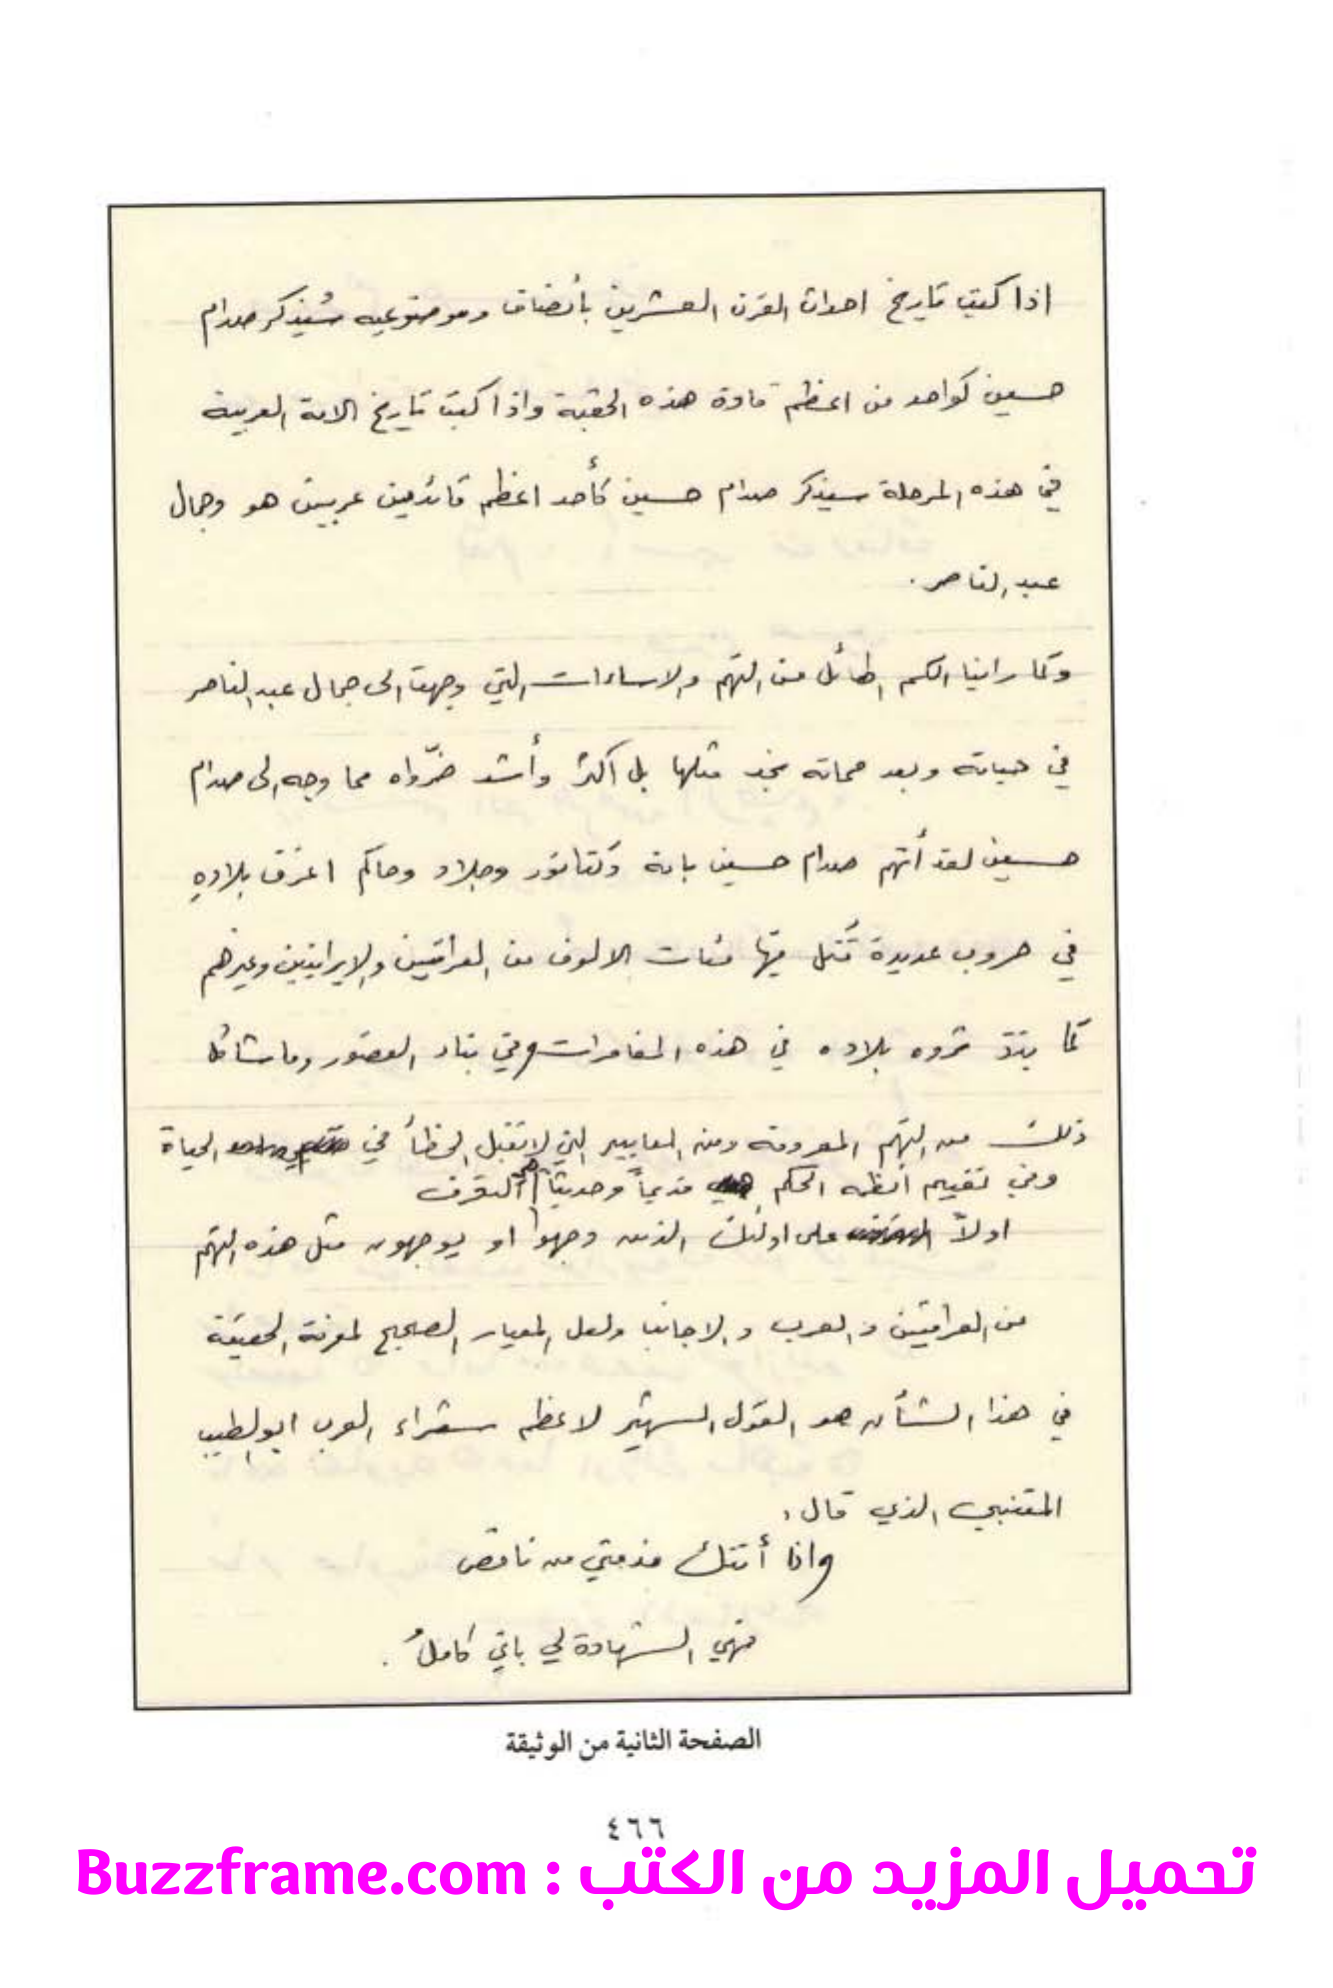 اذا كتب تاريخ احداث القرن العشرين بأنصاف وموضوعيه سُيذكر صدام
حسين كواحد من اعظم قادة هذه الحقبة واذا كتب تاريخ الامة العربية
في هذه المرحلة سيذكر صدام حسين كأحد اعظم قائدين عربيين هو وجمال
عبد الناصر .
وكما راينا الكم الهائل من التهم والاساءات التي وجهت الى جمال عبد الناصر
في حياته وبعد مماته نجد مثلها بل اكثر وأشد ضرواه مما وجه الى صدام
حسين لقد أتهم صدام حسين بانه دكتاتور وجلاد وحاكم اغرق بلاده
في حروب عديدة قُتل فيها مئات الالوف من العراقيين والإيرانيين وغيرهم
كما بدّد ثروه بلاده في هذه المغامرات وفي بناء القصور وما شاكل
ذلك من التهم المعروفه ومن المعايير التي لا تقبل الخطأ في الحياة
وفي تقييم أنظمه الحكم قديماً وحديثاً هي التعرف
اولاً على اولئك الذين وجهوا او يوجهون مثل هذه التهم
من العراقيين والعرب والاجانب ولعل المعيار الصحيح لمعرفة الحقيقة
في هذا الشأن هو القول الشهير لاعظم شعراء العرب ابو الطيب
المتنبي الذي قال ،
واذا أتتك مذمتي من ناقص
فهي الشهادة لي باني كاملُ .
الصفحة الثانية من الوثيقة
٤٦٦
تحميل المزيد من الكتب : Buzzframe.com